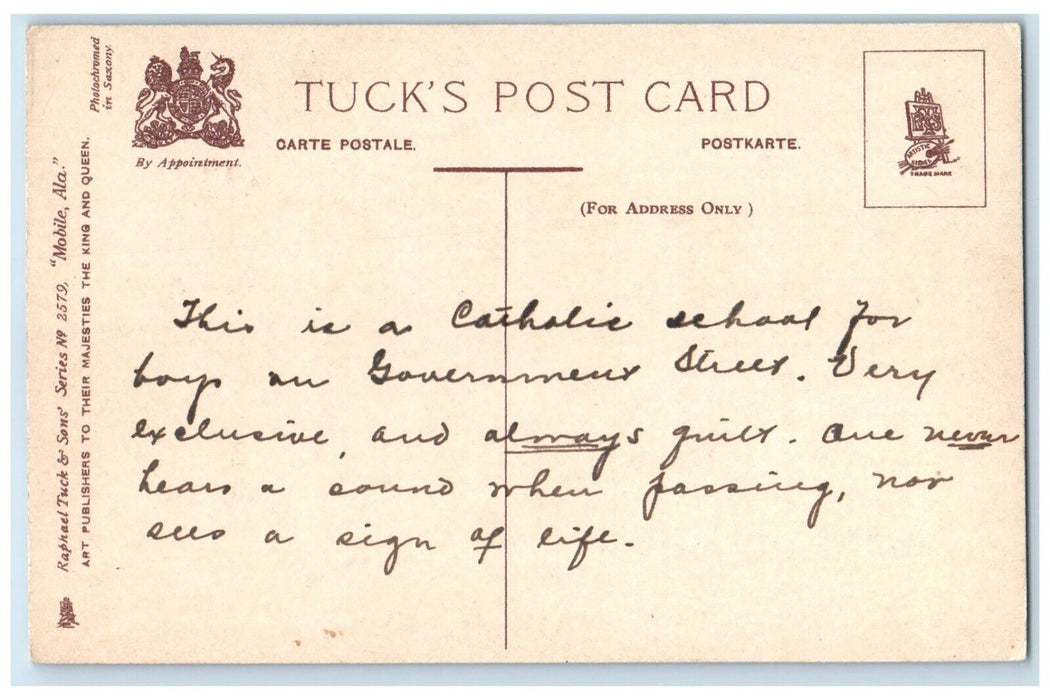 Photochromed
in Saxony.
Raphael Tuck & Sons' Series Nº 2579, "Mobile, Ala."
ART PUBLISHERS TO THEIR MAJESTIES THE KING AND QUEEN.
By Appointment.
TUCK'S POST CARD
CARTE POSTALE.
POSTKARTE.
(FOR ADDRESS ONLY)
ARTISTIC
SERIES
TRADE MARK
This is a Catholic school for
boys on Government Street. Very
exclusive, and always quiet. One never
hears a sound when passing, nor
sees a sign of life.